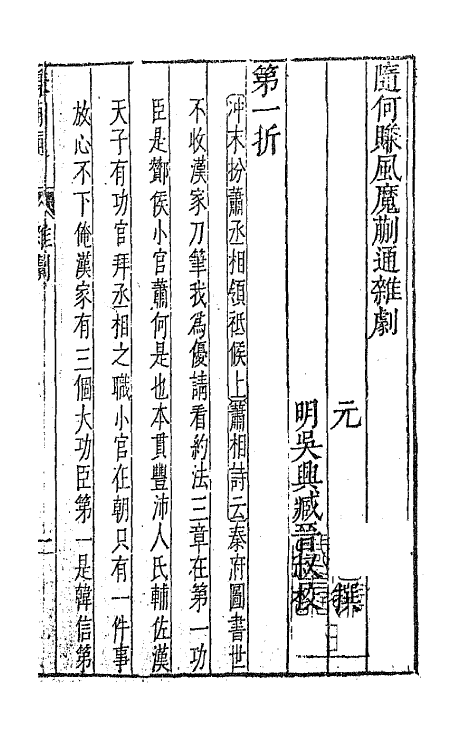 隨何賺風魔蒯通雜劇
元 撰
明吳興臧晉叔校
第一折
沖末扮蕭丞相領祗候上蕭相詩云秦府圖書世
不收漢家刀筆我爲優請看約法三章在第一功
臣是酇侯小官蕭何是也本貫豐沛人氏輔佐漢
天子有功官拜丞相之職小官在朝只有一件事
放心不下俺漢家有三個大功臣第一是韓信第
雜劇
一